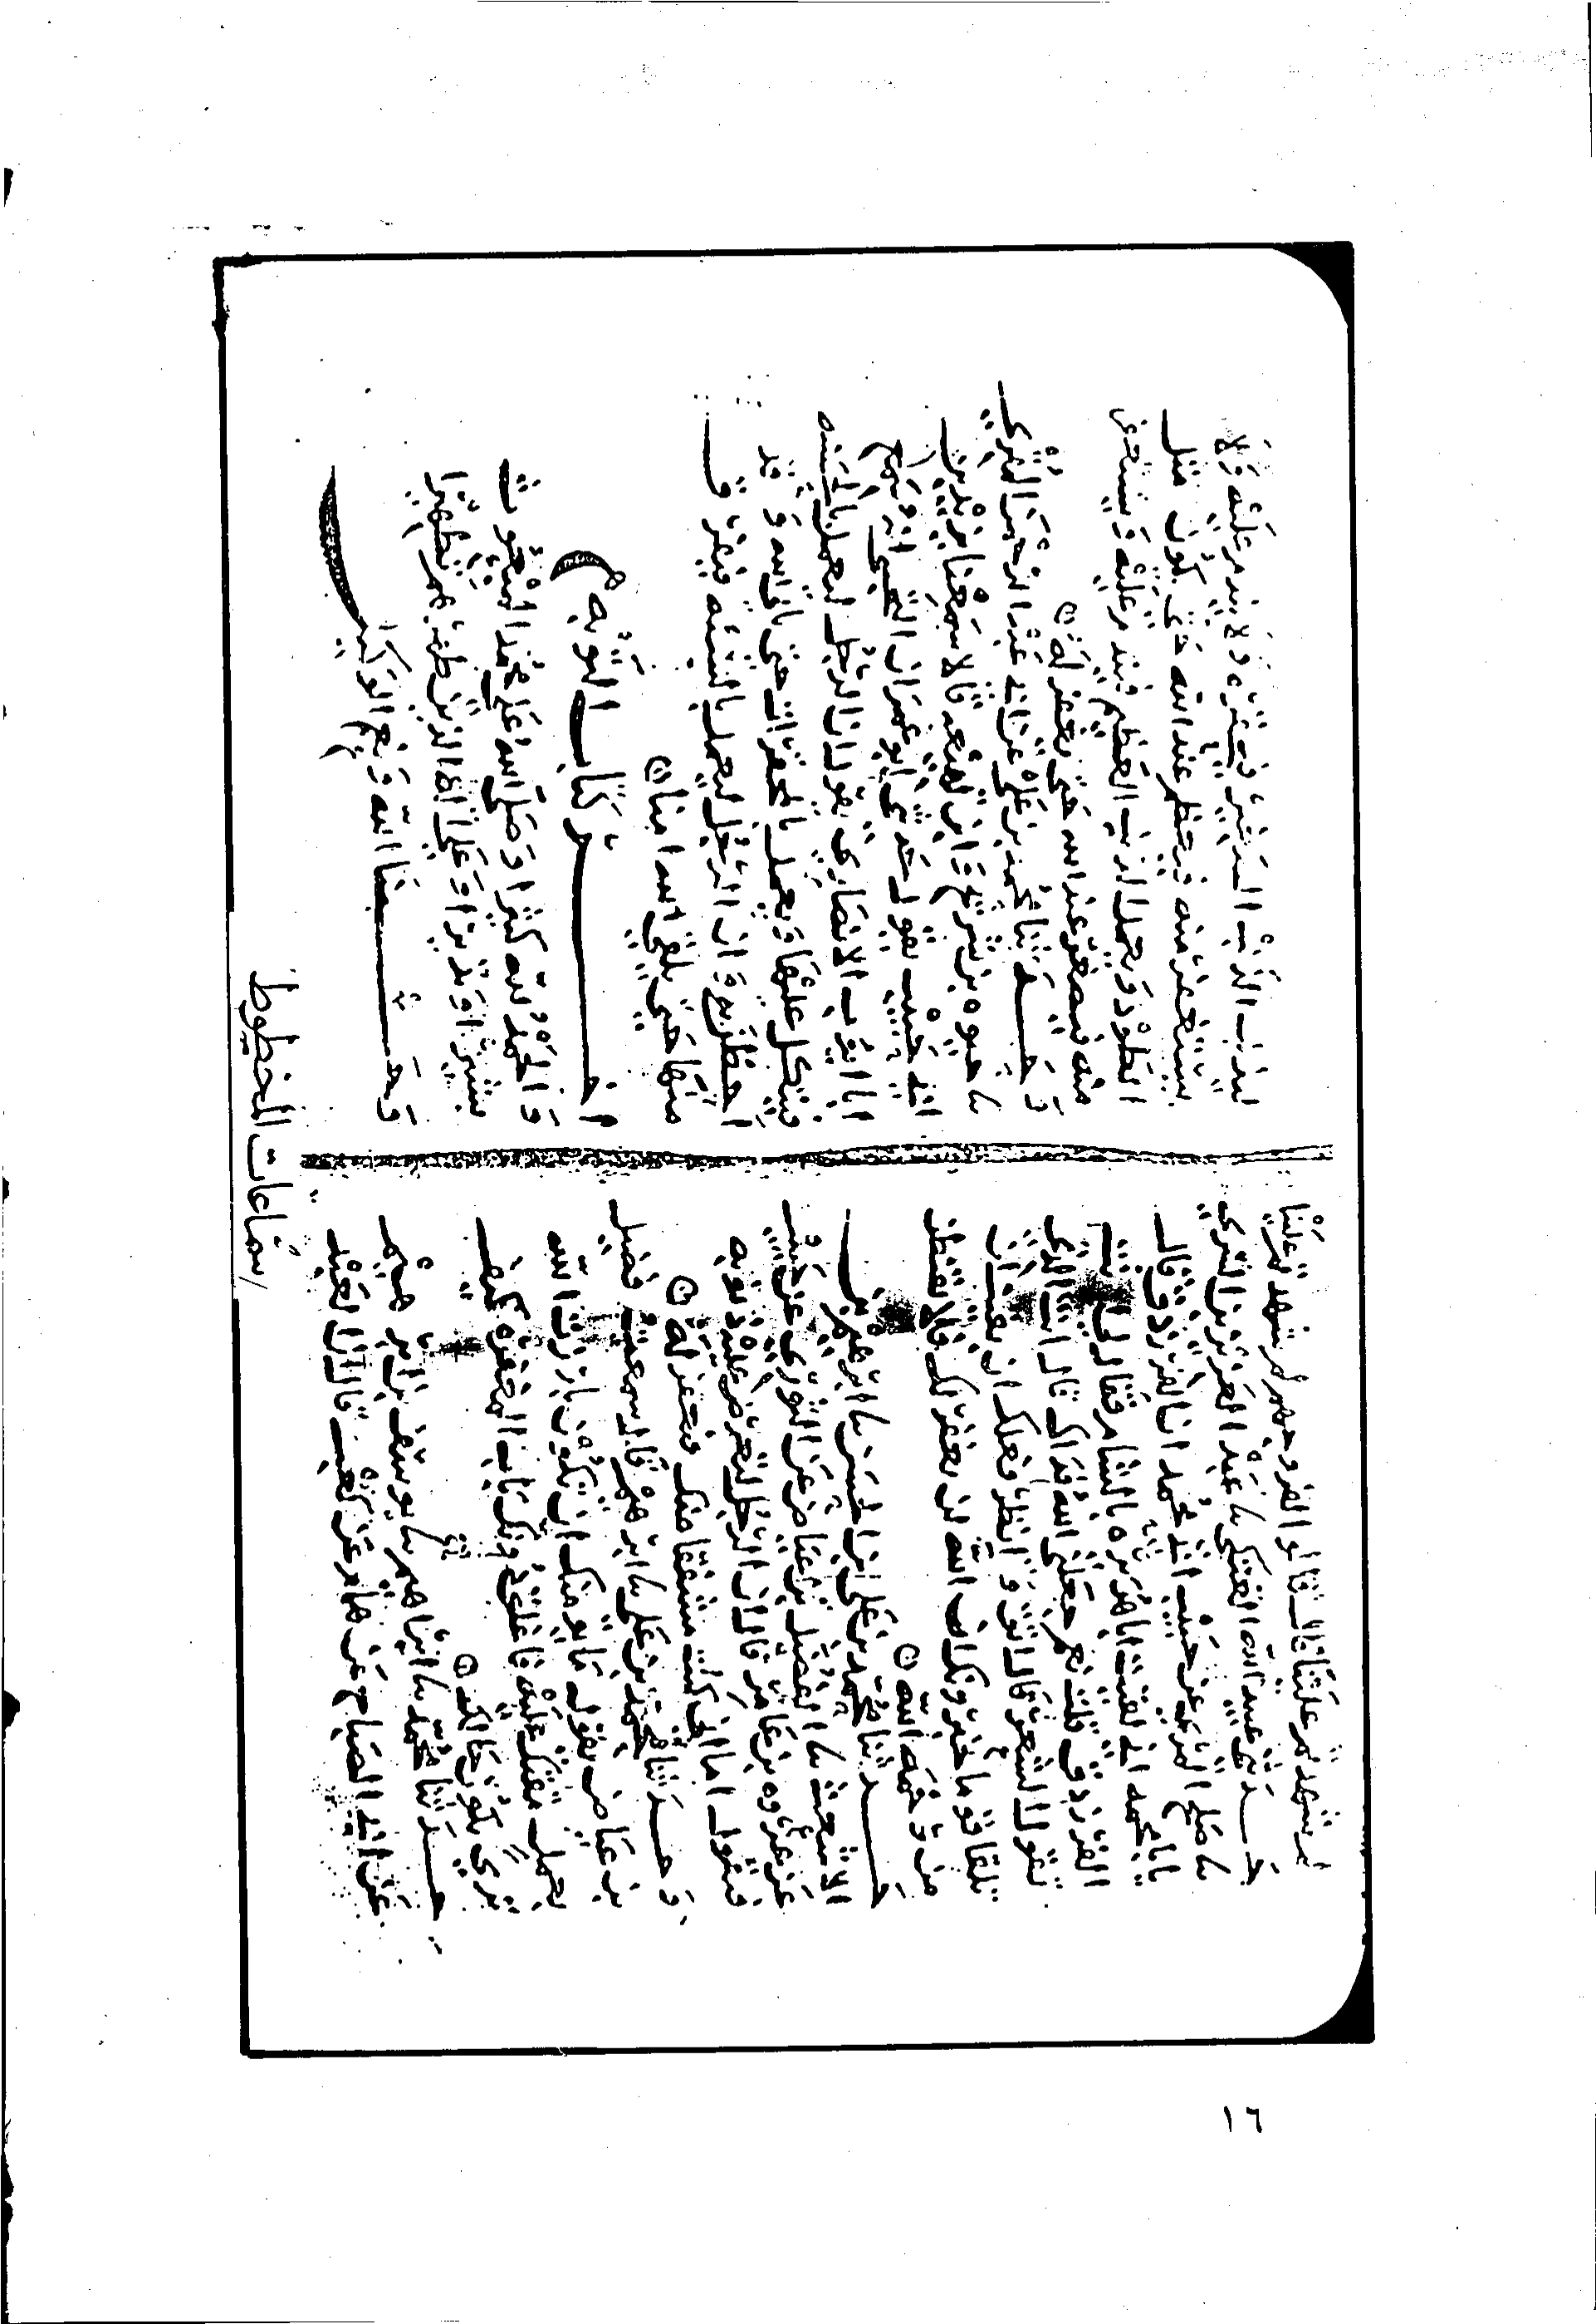 سماعات المخطوط
علينا قال قالوا لفروجهم لم
حدثني عبيد الله العتكي نا عبد العزيز بن السري
نا صالح المري عن حبيب ابي محمد انا الفرزدق قال
يابا محمد اني لقيت اباهريره بالشام فقال لي انت
الفرزدق قلت نعم جعلني الله فداك قال انت الذي
تقول الشعر قال اتق وانظر فعلك ان بقيت ان
تلقا قوما يخبرونك ان الله لن يغفر لك فلا تقنطن
من رحمة الله
حدثنا محمد بن علي بن الحسن نا ابرهيم بن
الاشعث نا الفضيل بن عياض عن الثوري عن حبيب
عن عروه بن عامر قال ان الرجل لتعرض عليه ذنوبه
فيقول اما اني كنت مشفقا منك فيغفر له
وحدثنا محمد بن علي نا ابرهيم قال سمعت فضيل
بن عياض يقول ما يؤمنك ان تكون بارزت الله
بعمل مقتك عليه فاغلق دونك باب المغفره كيف
ترى يكون حالك
حدثنا محمد نا ابراهيم نا يوسف بن ابرهيم
عن ابي الصباح عن همام عن كعب قال ان العبد
ليذنب الذنب الصغير فيحقره ولا يندم عليه ولا
يستغفر منه فيعظم عند الله حتى يكون مثل
الطود ويعمل الذنب العظيم فيندم عليه ويستغفر
منه فيصغر عند الله حتى يغفر له
وحدثنا محمد بن علي عن ابي عبد الرحمن المقري
نا حيوه بن شريح وابن لهيعه قالا سمعنا يزيد بن
ابي حبيب يقول حدثني ابو عمران التجيبي انه سمع
ابا ايوب الانصاري يقول ان الرجل ليعمل بالحسنه
فيتكل عليها ويعمل بالمحقرات حتى ياتي الله وقد
احطن به وان الرجل ليعمل بالسيئه فيفرق
منها حتى يلقى الله امنا
اخر كتاب التوبه
والحمد لله كثيرا وصلى الله على محمد المبعوث
بشيرا ونذيرا وعلى اله الذين تطهيرا
وحسبنا الله ونعم الوكيل
١٦